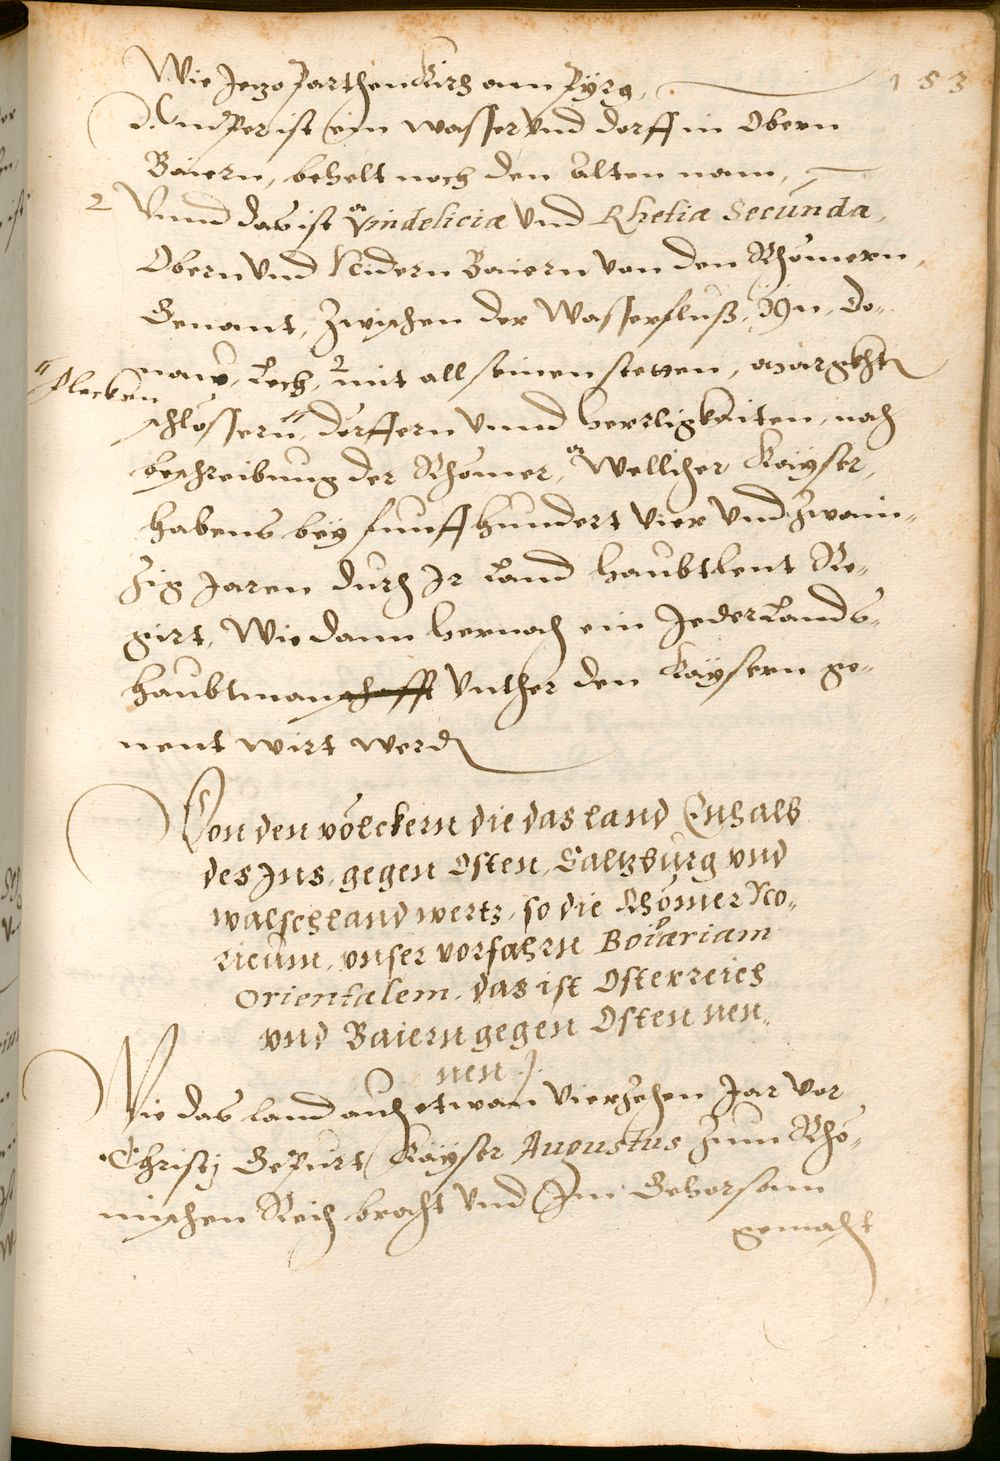 153
Wie Jezo Parthenkirch am Pyrg,
d. Amper ist ein wasser Vnd dorff in Obern
Baiern, behelt noch den alten nam,
2 Vnnd das ist Vindeliciæ Vnd Rhetia Secunda,
Obern Vnd Nidern Baiern von den Rhömern,
Genant, Zwischen der Wasserfluß, Yn, Do-
naw, Lech, 2 mit all seinen stetten, Margkhten
" Flecken
schlössern, " dörffern Vnnd herrligkaiten, nach
beschreibung der Rhömer, Wellicher Kayser,
habens bey funffhundert Vier Vnd Zwain-
Zig Jaren durch Ir Land haubtleut Re-
girt, Wie dann hernach ein Jeder Lands-
haubtmanschafft Vnther den Kaysern ge-
nent wirt werden
Von den völckern die das land Enhalb
des Ins, gegen Osten, Saltzburg vnd
walschland wertz, so die Rhömer No-
ricum, vnser vorfahrn Boiariam
Orientalem, das ist Osterreich
vnd Baiern gegen Osten nen-
nen.
Wie das land auch etwan Vierzehen Jar vor
Christj Gepurt Kayser Augustus Zum Rhö-
mischen Reich bracht Vnd Im Gehorsam
gemacht